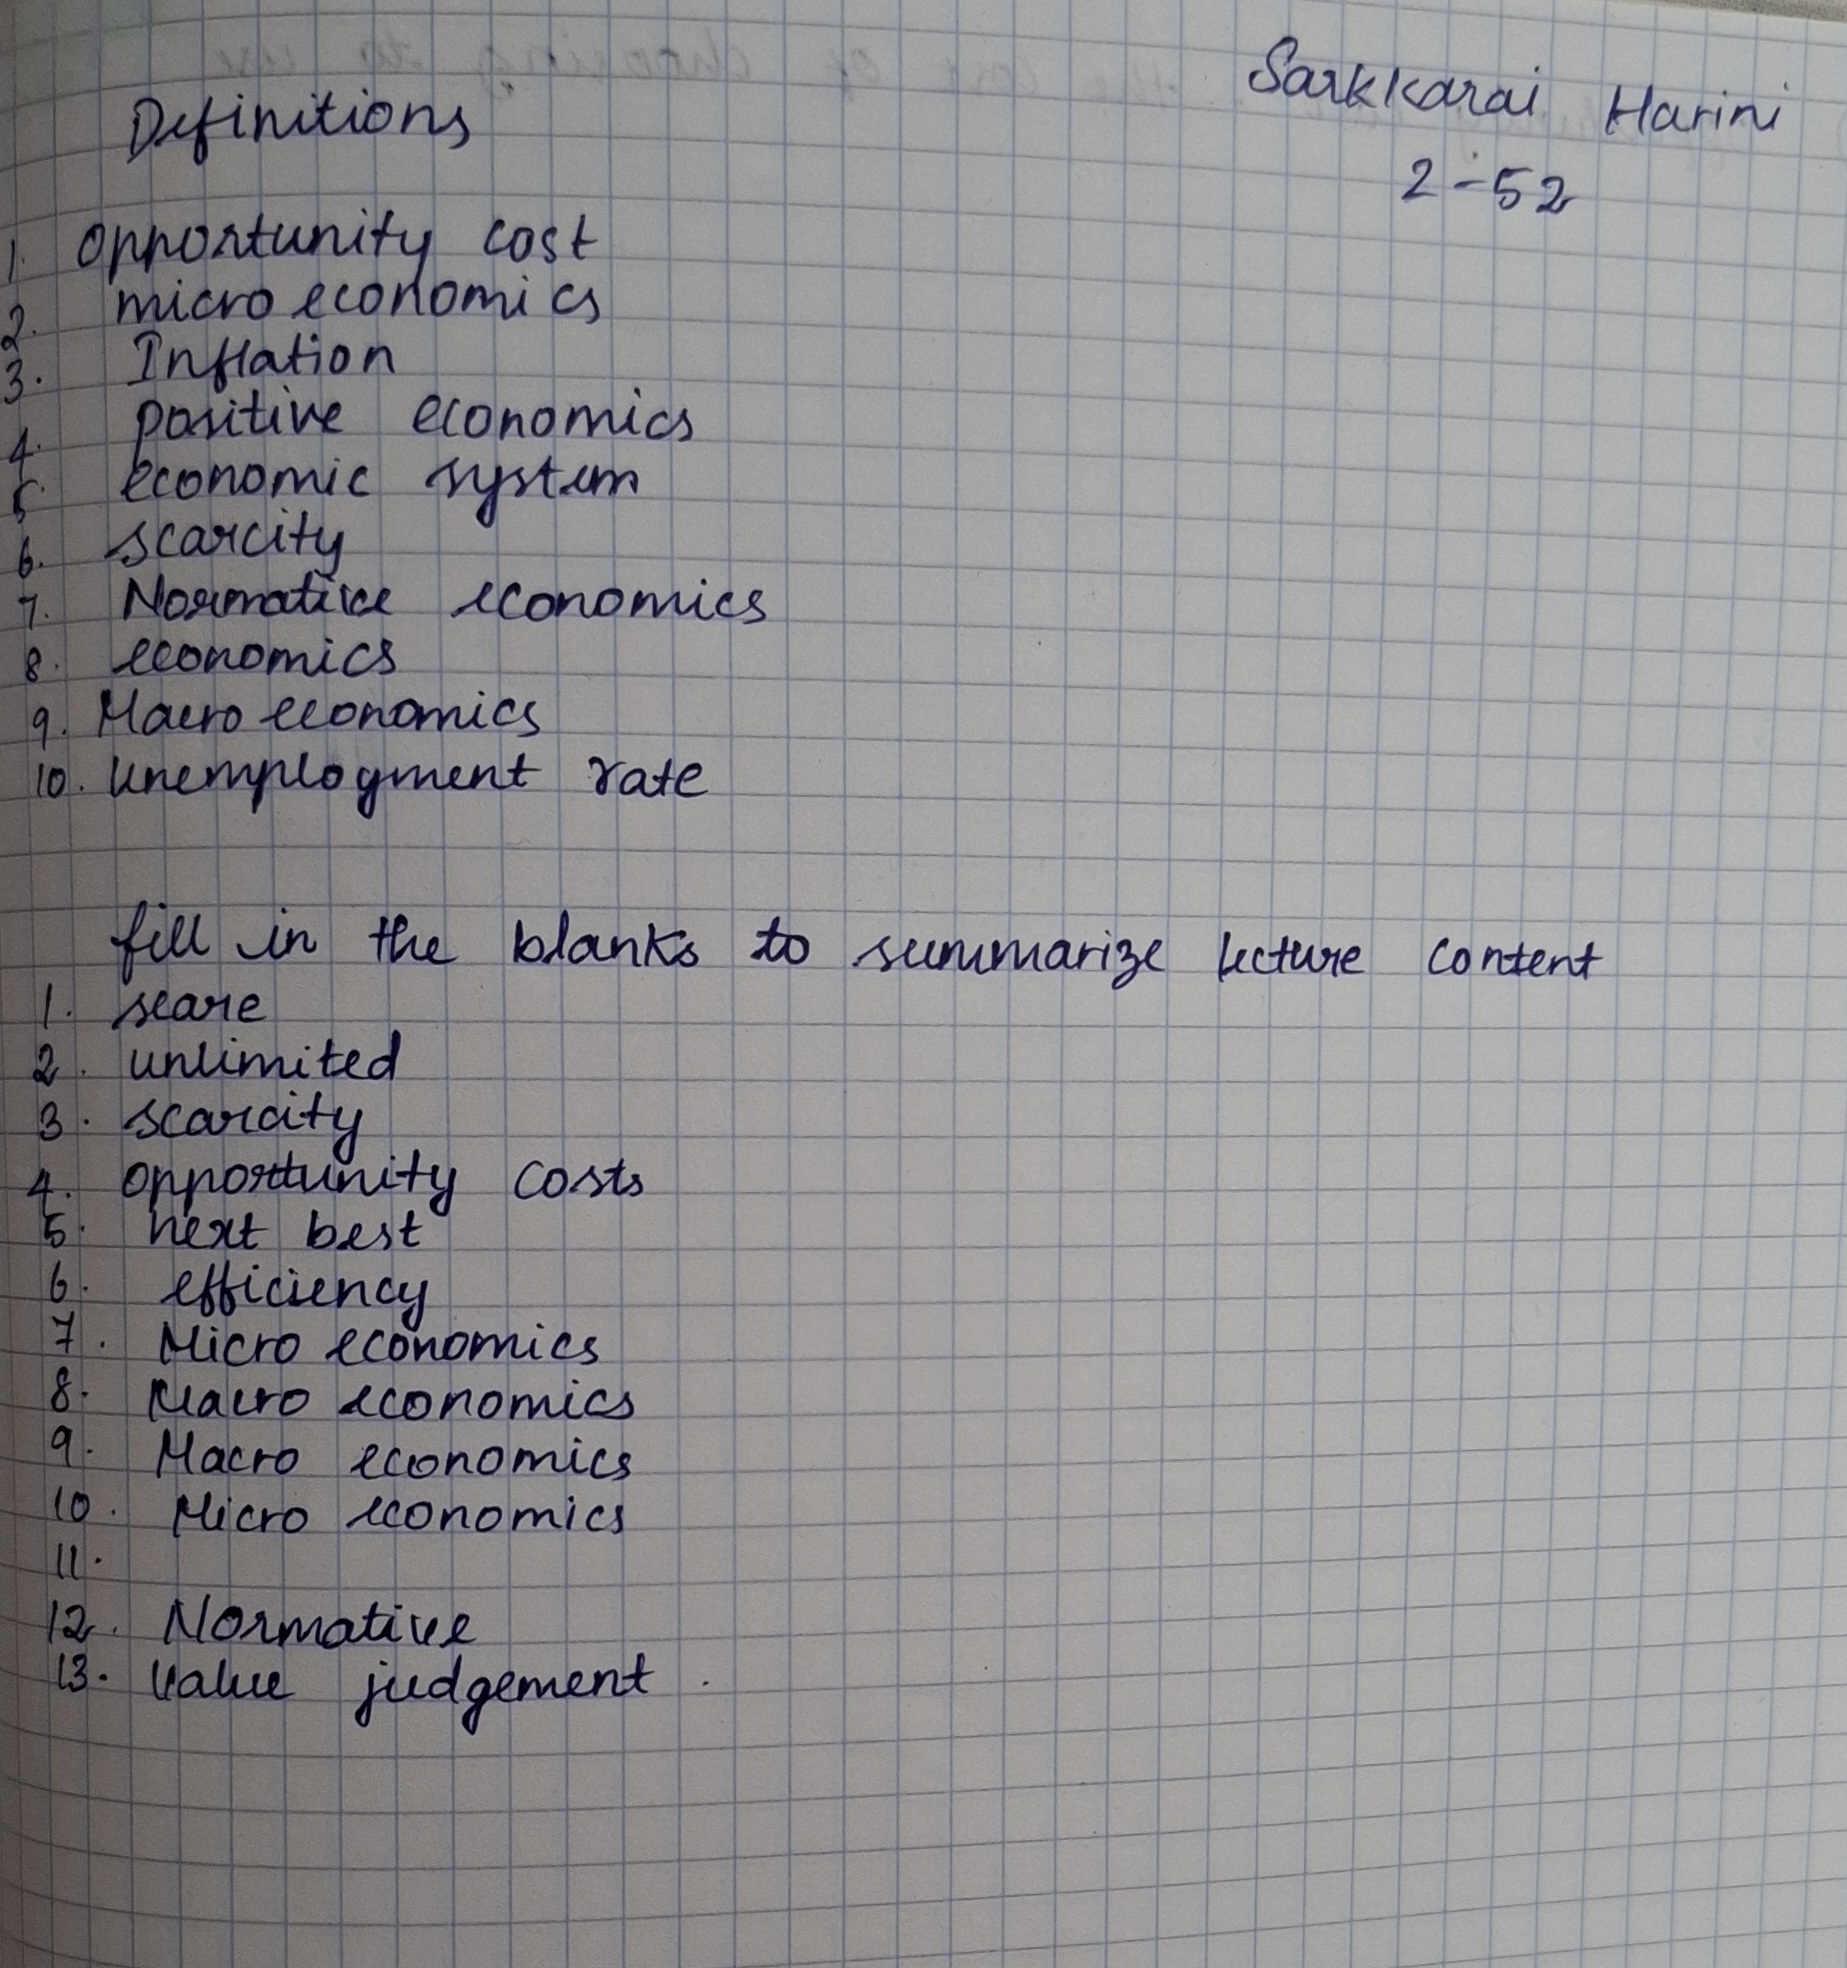 Sarkkarai Harini
2-52
Definitions
1. opportunity cost
2. micro economics
3. Inflation
4. positive economics
5. economic system
6. scarcity
7. Normative economics
8. economics
9. Macro economics
10. unemployment rate
fill in the blanks to summarize lecture content
1. scare
2. unlimited
3. scarcity
4. opportunity costs
5. next best
6. efficiency
7. Micro economics
8. Macro economics
9. Macro economics
10. Micro economics
11.
12. Normative
13. value judgement.